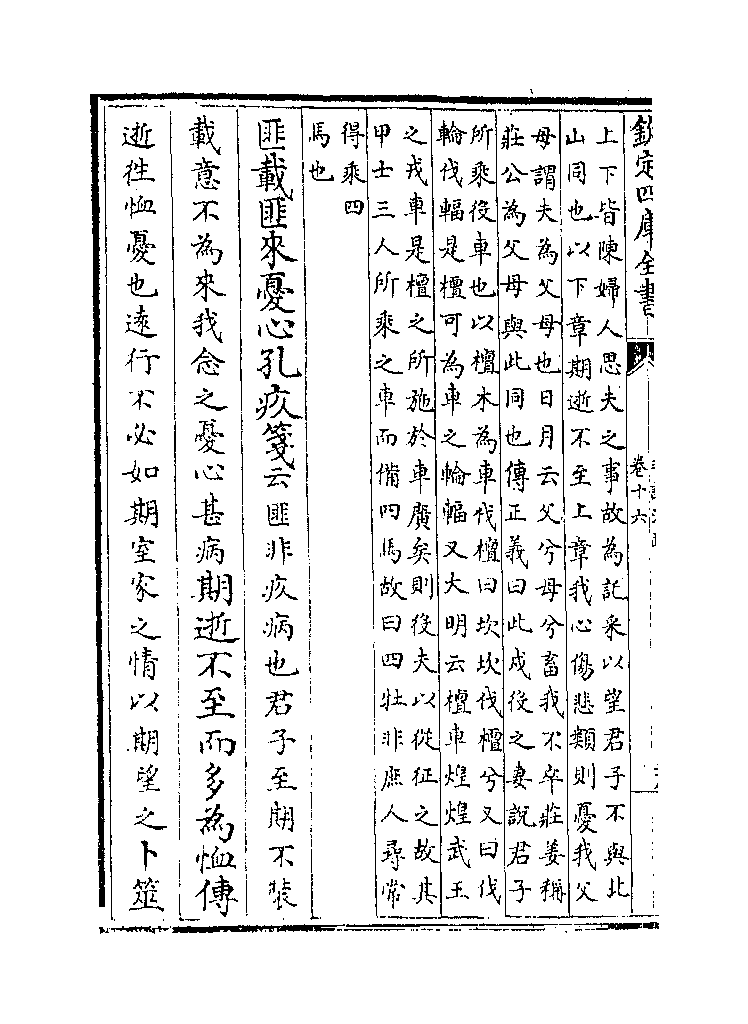 欽定四庫全書
卷十六
上下皆陳婦人思夫之事故為託采以望君子不與北
山同也以下章期逝不至上章我心傷悲類則憂我父
母謂夫為父母也日月云父兮母兮畜我不卒莊姜稱
莊公為父母與此同也傳正義曰此戍役之妻說君子
所乘役車也以檀木為車伐檀曰坎坎伐檀兮又曰伐
輪伐輻是檀可為車之輪輻又大明云檀車煌煌武王
之戎車是檀之所施於車廣矣則役夫以從征之故其
甲士三人所乘之車而備四馬故曰四牡非庶人尋常
得乘四
馬也
匪載匪來憂心孔疚箋云匪非疚病也君子至期不裝
載意不為來我念之憂心甚病期逝不至而多為恤傳
逝徃恤憂也逺行不必如期室家之情以期望之卜筮